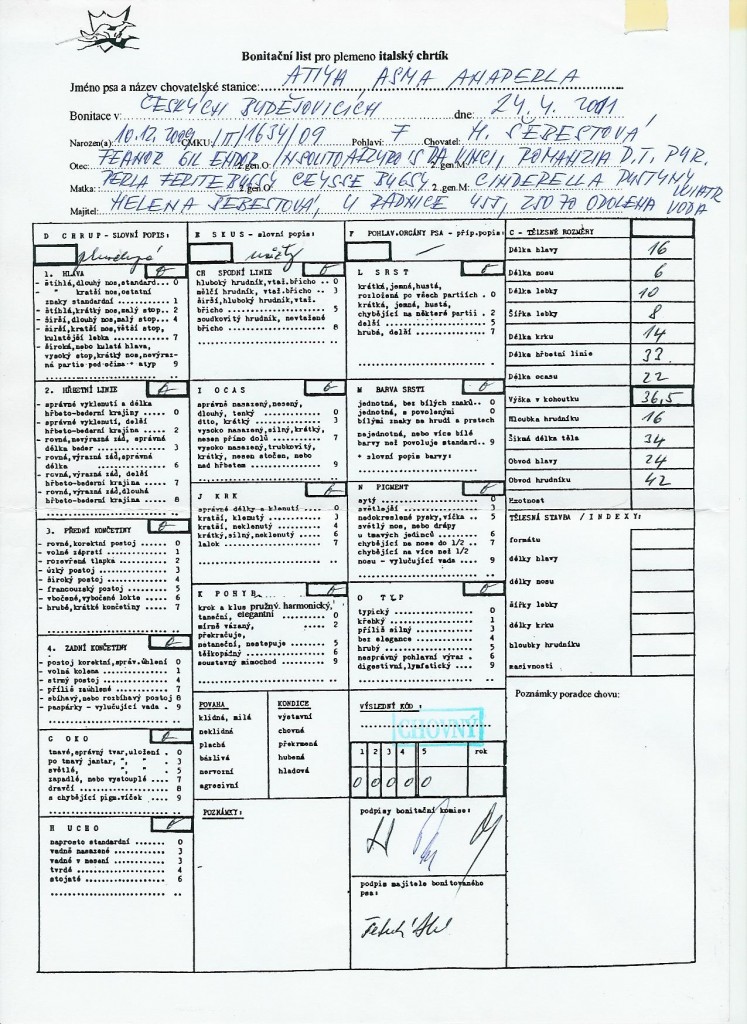 Bonitační list pro plemeno italský chrtík
Jméno psa a název chovatelské stanice: ATIYA ASMA AHAPERLA
Bonitace v: ČESKÝCH BUDĚJOVICÍCH dne: 24. 4. 2011
Narozen(a): 10.12.2009 ČMKU/IT/1634/09 Pohlaví: F Chovatel: H. ŠEBESTOVÁ
Otec: FEANOR GIL ENDOR 2.gen.O: 2.gen.M:
Matka: PERLA FERITE BUGSY 2.gen.O: CEYSSE BUGSY 2.gen.M: CINDERELLA PUSTYNY WIATR
Majitel: HELENA ŠEBESTOVÁ, U RADNICE 455, 250 70 ODOLENA VODA
D CHRUP - SLOVNÍ POPIS:
1. HLAVA 0
- štíhlá,dlouhý nos,standard... 0
- " kratší nos,ostatní
znaky standardní ........... 1
- štíhlá,krátký nos,malý stop.. 2
- širší,dlouhý nos,malý stop... 4
- širší,kratší nos,větší stop,
kulatější lebka ............ 7
- široká,nebo kulatá hlava,
vysoký stop,krátký nos,nevýraz-
ná partie pod očima-* atyp 9
2. HŘBETNÍ LINIE 0
- správné vyklenutí a délka
hřbeto-bederní krajiny ..... 0
- správné vyklenutí, delší
hřbeto-bederní krajina ..... 2
- rovná,nevýrazná záď, správná
délka beder ................ 3
- rovná,výrazná záď,správná
délka ...................... 6
- rovná,výrazná záď, delší
hřbeto-bederní krajina ..... 7
- rovná,výrazná záď,dlouhá
hřbeto-bederní krajina ..... 8
3. PŘEDNÍ KONČETINY 0
- rovné,korektní postoj ...... 0
- volné záprstí .............. 1
- rozevřená tlapka ........... 2
- úzký postoj ................ 3
- široký postoj .............. 4
- francouzský postoj ......... 5
- vbočené,vybočené lokte ..... 6
- hrubé,krátké končetiny ..... 7
4. ZADNÍ KONČETINY 0
- postoj korektní,správ.úhlení 0
- volná kolena ............... 1
- strmý postoj ............... 4
- příliš zaúhlené ............ 7
- sbíhavý,nebo rozbíhavý postoj 8
- paspárky - vylučující vada . 9
G OKO 0
tmavé,správný tvar,uložení . 0
po tmavý jantar, ", " . 3
světlé, " " . 5
zapadlé, nebo vystouplé .... 7
dravčí ..................... 8
s chybějící pigm.víček ..... 9
H UCHO 0
naprosto standardní ........ 0
vadně nasazené ............. 3
vadné v nesení ............. 3
tvrdé ...................... 4
stojaté .................... 6
E SKUS - slovní popis:
nůžky
CH SPODNÍ LINIE 0
hluboký hrudník,vtaž.břicho .. 0
mělčí hrudník, vtaž.břicho .. 3
širší,hluboký hrudník,vtaž.
břicho ..................... 5
soudkovitý hrudník, nevtažené
břicho ..................... 8
I OCAS 0
správně nasazený,nesený,
dlouhý, tenký .............. 0
dtto, krátký ............... 3
vysoko nasazený,silný,krátký,
nesen přímo dolů ........... 7
vysoko nasazený,trubkovitý,
krátký, nesen stočen, nebo
nad hřbetem ................ 9
J KRK 0
správné délky a klenutí .... 0
kratší, klenutý ............ 3
kratší, neklenutý .......... 4
krátký,silný,neklenutý ..... 6
lalok ...................... 7
K POHYB 0
krok a klus pružný, harmonický,
taneční, elegantní ......... 0
mírně vázaný, .............. 2
překračuje,
netaneční, nestepuje ....... 5
těžkopádný ................. 6
soustavný mimochod ......... 9
POVAHA
klidná, milá
neklidná
plachá
bázlivá
nervozní
agresivní
KONDICE
výstavní
chovná
překrmená
hubená
hladová
POZNÁMKY:
F POHLAV.ORGÁNY PSA - příp.popis:
L SRST 0
krátká,jemná,hustá,
rozložená po všech partiích . 0
krátká, jemná, hustá,
chybějící na některé partii . 2
delší ...................... 5
hrubá, delší ............... 7
M BARVA SRSTI 0
jednotná, bez bílých znaků.. 0
jednotná, s povolenými
bílými znaky na hrudi a prstech
nejednotná, nebo více bílé
barvy než povoluje standard.. 9
* slovní popis barvy:
N PIGMENT 0
sytý ....................... 0
světlejší .................. 3
nedokreslené pysky,víčka .. 5
světlý nos, nebo drápy
u tmavých jedinců .......... 6
chybějící na nose do 1/2 .. 7
chybějící na více než 1/2
nosu - vylučující vada ..... 9
O TYP 0
typický .................... 0
křehký ..................... 1
příliš silný ............... 3
bez elegance ............... 4
hrubý ...................... 5
nesprávný pohlavní výraz . 6
digestivní,lymfatický .... 9
VÝSLEDNÍ KÓD :
CHOVNÝ
1 2 3 4 5 rok
0 0 0 0 0
podpisy bonitační komise:
podpis majitele bonitovaného
psa:
C - TĚLESNÉ ROZMĚRY
Délka hlavy 16
Délka nosu 6
Délka lebky 10
Šířka lebky 8
Délka krku 14
Délka hřbetní linie 33
Délka ocasu 22
Výška v kohoutku 36,5
Hloubka hrudníku 16
Šikmá délka těla 34
Obvod hlavy 24
Obvod hrudníku 42
Hmotnost
TĚLESNÁ STAVBA / INDEXY:
formátu
délky hlavy
délky nosu
šířky lebky
délky krku
hloubky hrudníku
masivnosti
Poznámky poradce chovu: